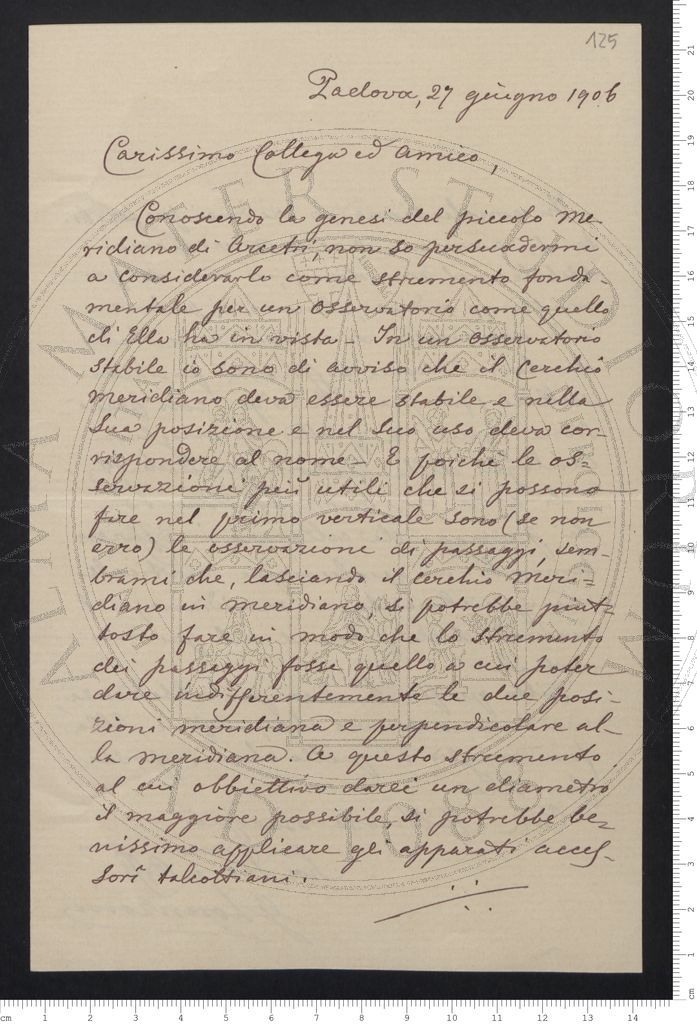 125
Padova, 27 giugno 1906
Carissimo Collega ed amico,
Conoscendo la genesi del piccolo me-
ridiano di Arcetri, non so persuadermi
a considerarlo come strumento fonda-
mentale per un osservatorio come quello
di Ella ha in vista – In un osservatorio
stabile io sono di avviso che il Cerchio
meridiano deva essere stabile e nella
sua posizione e nel suo uso deva cor-
rispondere al nome – E poichè le os=
servazioni più utili che si possono
fare nel primo verticale sono (se non
erro) le osservazioni di passaggi, sem-
brami che, lasciando il cerchio meri=
diano in meridiano, si potrebbe piut-
tosto fare in modo che lo strumento
dei passaggi fosse quello a cui poter
dare indifferentemente le due posi-
zioni meridiana e perpendicolare al-
la meridiana. A questo strumento
al cui obbiettivo darei un diametro
il maggiore possibile, si potrebbe be-
nissimo applicare gli apparati acces-
sorî talcottiani.
ALMA MATER STUDIORUM
A.D. 1088